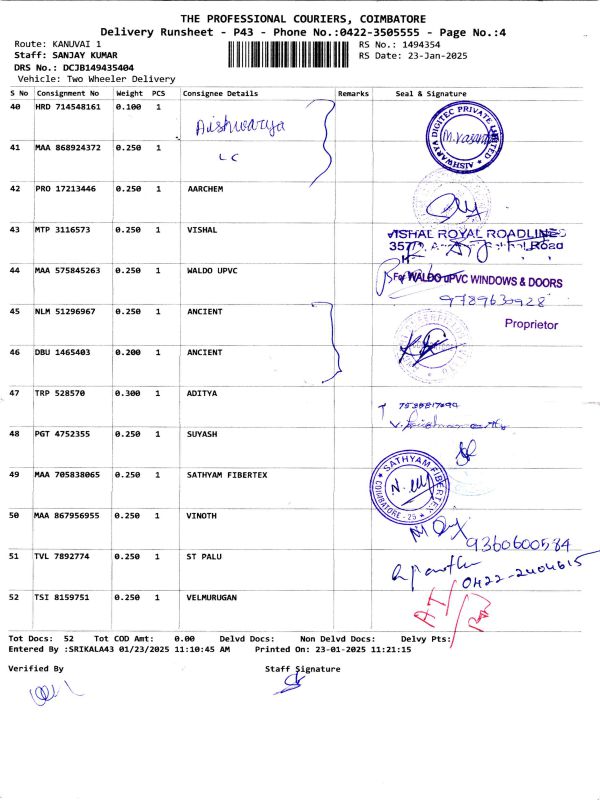 THE PROFESSIONAL COURIERS, COIMBATORE
Delivery Runsheet - P43 - Phone No.:0422-3505555 - Page No.:4
Route: KANUVAI 1 RS No.: 1494354
Staff: SANJAY KUMAR RS Date: 23-Jan-2025
DRS No.: DCJB149435404
Vehicle: Two Wheeler Delivery
S No Consignment No Weight PCS Consignee Details Remarks Seal & Signature
40 HRD 714548161 0.100 1 Aishwarya AISHWARYA DIGITEC PRIVATE LIMITED
41 MAA 868924372 0.250 1 LC
42 PRO 17213446 0.250 1 AARCHEM
43 MTP 3116573 0.250 1 VISHAL VISHAL ROYAL ROADLINES
44 MAA 575845263 0.250 1 WALDO UPVC For WALDO uPVC WINDOWS & DOORS
9789630928
45 NLM 51296967 0.250 1 ANCIENT Proprietor
46 DBU 1465403 0.200 1 ANCIENT
47 TRP 528570 0.300 1 ADITYA
48 PGT 4752355 0.250 1 SUYASH
49 MAA 705838065 0.250 1 SATHYAM FIBERTEX SATHYAM FIBERTEX COIMBATORE - 25
50 MAA 867956955 0.250 1 VINOTH
9360600584
51 TVL 7892774 0.250 1 ST PALU
0422-2404615
52 TSI 8159751 0.250 1 VELMURUGAN
Tot Docs: 52 Tot COD Amt: 0.00 Delvd Docs: Non Delvd Docs: Delvy Pts:
Entered By :SRIKALA43 01/23/2025 11:10:45 AM Printed On: 23-01-2025 11:21:15
Verified By Staff Signature